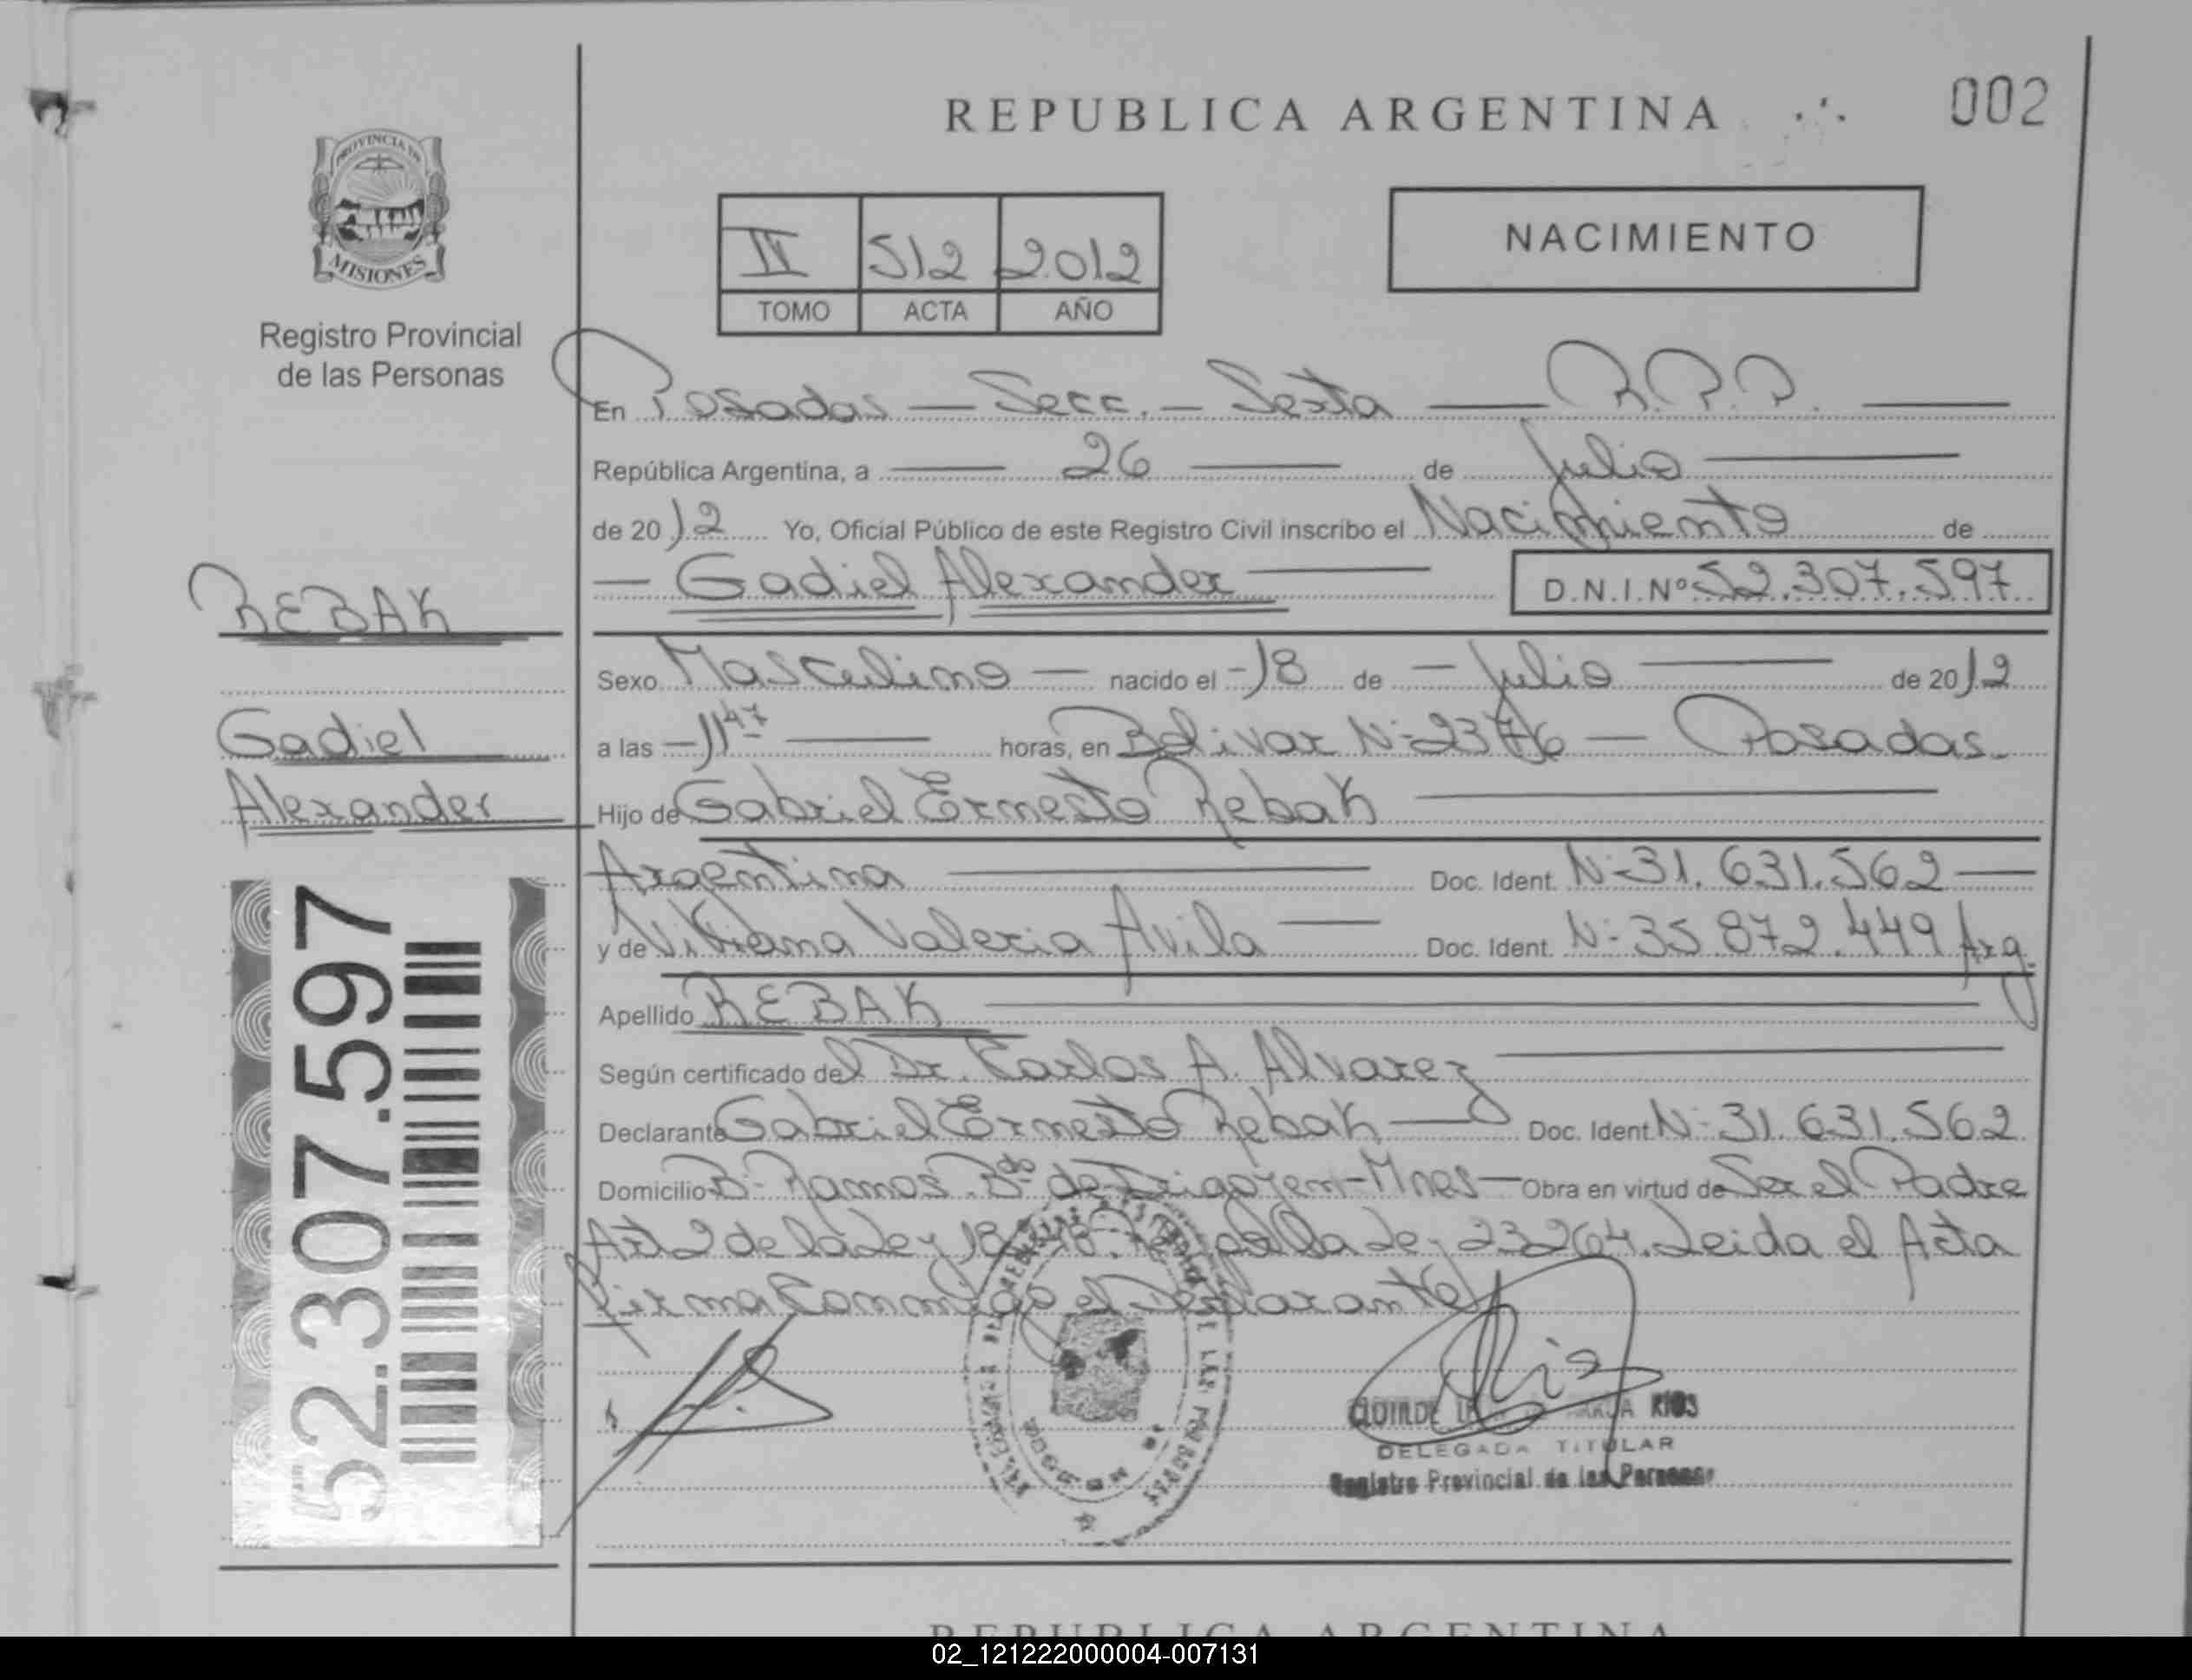 REPUBLICA ARGENTINA
002
PROVINCIA DE
MISIONES
Registro Provincial
de las Personas
II 512 2012
TOMO ACTA AÑO
NACIMIENTO
En Posadas — Secc. — Sexta — R.P.P. —
República Argentina, a — 26 — de Julio —
de 2012 Yo, Oficial Público de este Registro Civil inscribo el Nacimiento de
— Gadiel Alexander — D.N.I. Nº 52.307.597
REBAK
Gadiel
Alexander
Sexo Masculino — nacido el - 18 de — Julio — de 2012
a las — 11 47 — horas, en Bolivar N: 2376 — Posadas.
Hijo de Gabriel Ernesto Rebak —
Argentina — Doc. Ident. N: 31.631.562 —
y de Viviana Valeria Avila — Doc. Ident. N: 35.872.449 Arg.
Apellido REBAK —
Según certificado del Dr. Carlos A. Alvarez —
Declarante Gabriel Ernesto Rebak — Doc. Ident. N: 31.631.562
Domicilio B: Ramos. Bdo de Irigoyen - Mnes — Obra en virtud de Ser el Padre
Art 2 de la Ley la Ley 23264. Leida el Acta
firma Conmigo el Declarante
52.307.597
RIOS
DELEGADA TITULAR
Registro Provincial de las Personas
REPUBLICA ARGENTINA
02_121222000004-007131